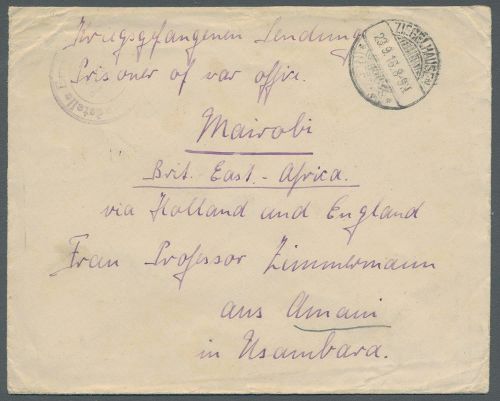 Kriegsgefangenen Sendung
Prisoner of war office.
Mairobi
Brit. East.-Africa.
via Holland and England
Frau Professor Zimmermann
aus Amani
in Usambara.
ZIEGELHAUSEN
23.9.16.8-9V.